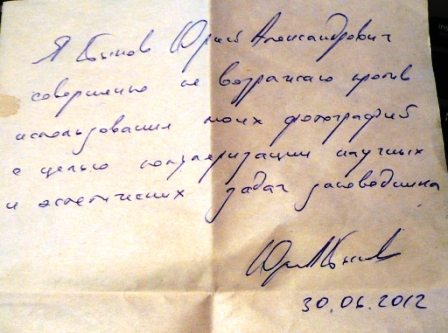 Я Быков Юрий Александрович
совершенно не возражаю против
использования моих фотографий
с целью популяризации научных
и эстетических задач заповедника
30.06.2012